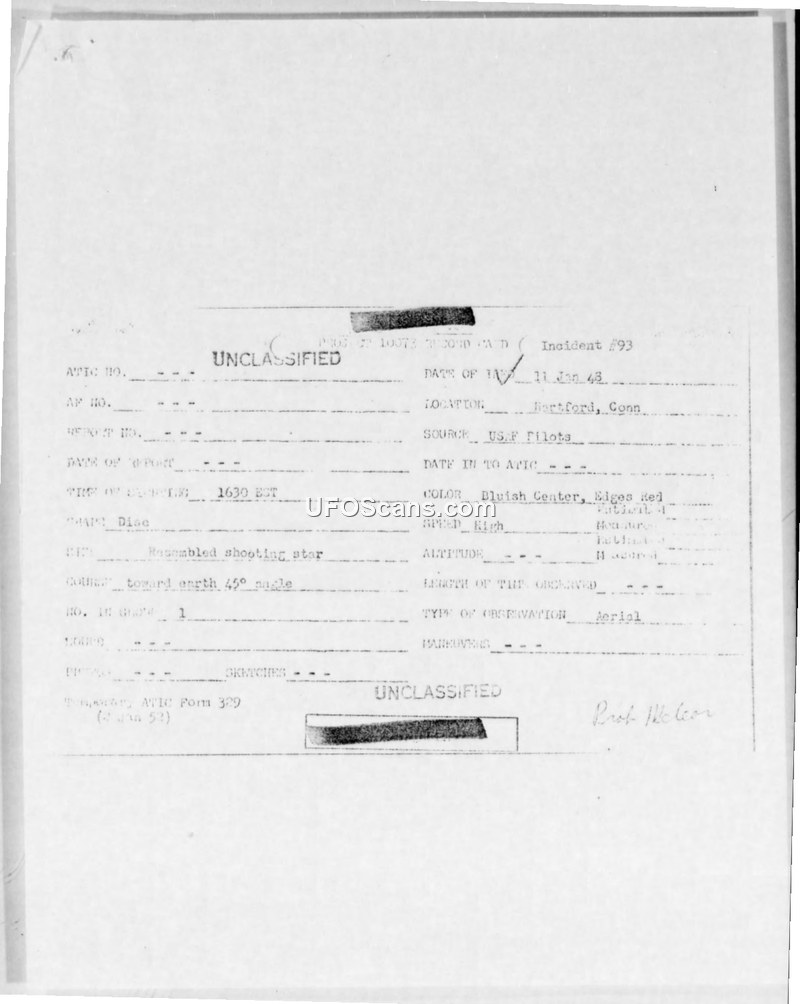 PROJECT 10073 RECORD CARD Incident #93
UNCLASSIFIED
ATIC NO. - - - DATE OF 11 Jan 48
AF NO. - - - LOCATION Hartford, Conn
REPORT NO. - - - SOURCE USAF Pilots
DATE OF REPORT - - - DATE IN TO ATIC - - -
TIME OF SIGHTING 1630 EST COLOR Bluish Center, Edges Red
UFOScans.com
SHAPE Disc SPEED High
Resembled shooting star ALTITUDE - - -
COURSE toward earth 45° angle LENGTH OF TIME OBSERVED - - -
NO. IN GROUP 1 TYPE OF OBSERVATION Aerial
SOUND - - - MANEUVERS - - -
PHOTOS - - - SKETCHES - - -
UNCLASSIFIED
Temporary ATIC Form 329
(2 Jan 52)
Prob Meteor